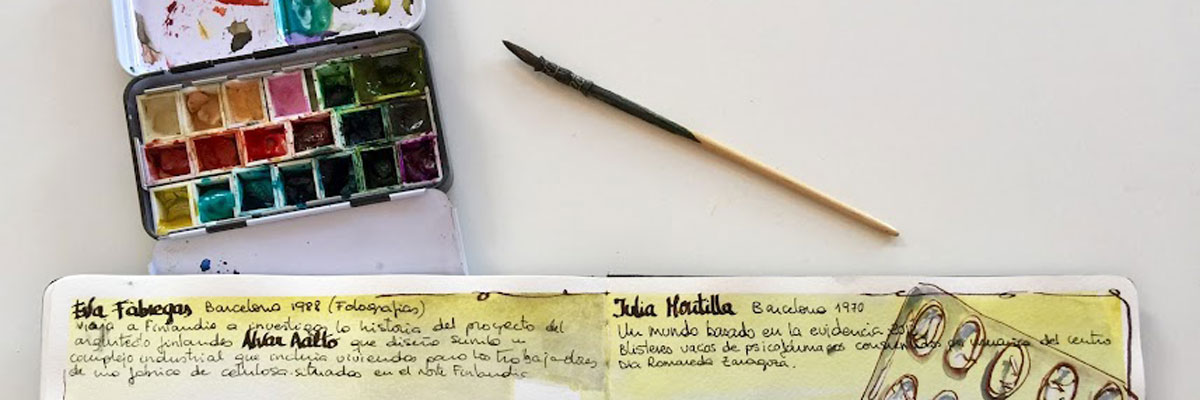 Eva Fàbregas Barcelona 1988 (Fotografías)
viaja a Finlandia a investigar la historia del proyecto del
arquitecto finlandés Alvar Aalto que diseño Sunila un
complejo industrial que incluía viviendas para los trabajadores
de una fábrica de celulosa situados en el Norte Finlandia
Julia Montilla Barcelona 1970
Un mundo basado en la evidencia
Blísteres vacos de psicofármacos consumidos usuarios del centro
Día Romareda Zaragoza.